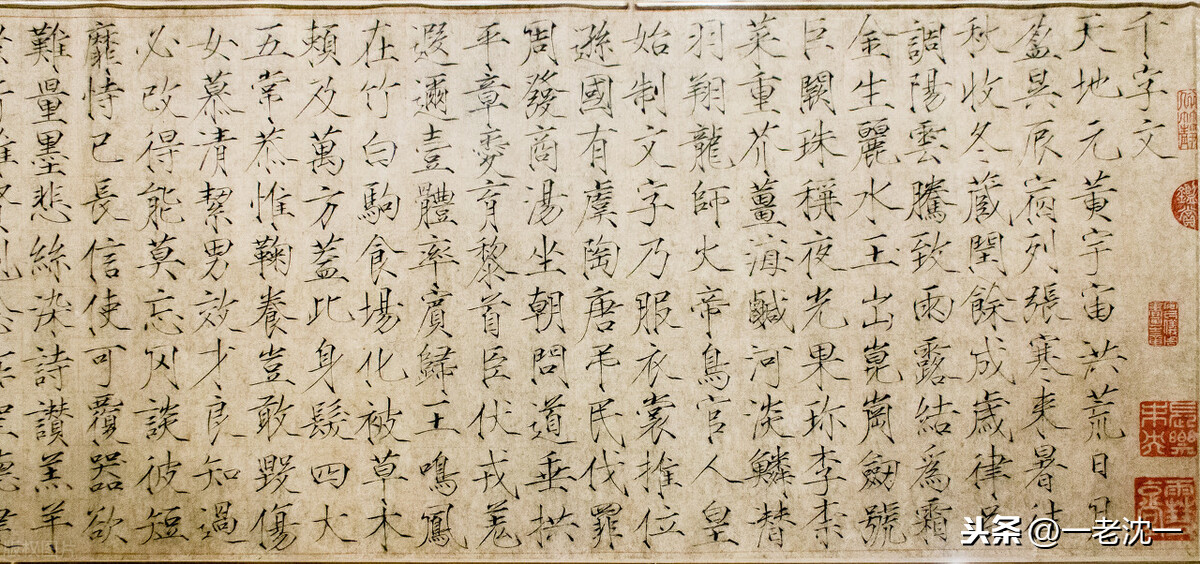 千字文
天地元黃宇宙洪荒日月
盈昃辰宿列張寒来暑往
秋收冬蔵閏餘成歲律呂
調陽雲騰致雨露結為霜
金生麗水玉出崑崗劒號
巨闕珠稱夜光果珎李柰
菜重芥薑海鹹河淡鱗潛
羽翔龍師火帝鳥官人皇
始制文字乃服衣裳推位
遜國有虞陶唐弔民伐罪
周發商湯坐朝問道垂拱
平章愛育黎首臣伏戎羌
遐邇壹體率賓歸王鳴鳳
在竹白駒食場化被草木
頼及萬方蓋此身髮四大
五常恭惟鞠養豈敢毀傷
女慕清絜男效才良知過
必改得能莫忘罔談彼短
靡恃己長信使可覆器欲
難量墨悲絲染詩讚羔羊
長樂未央
头条 @一老沈一